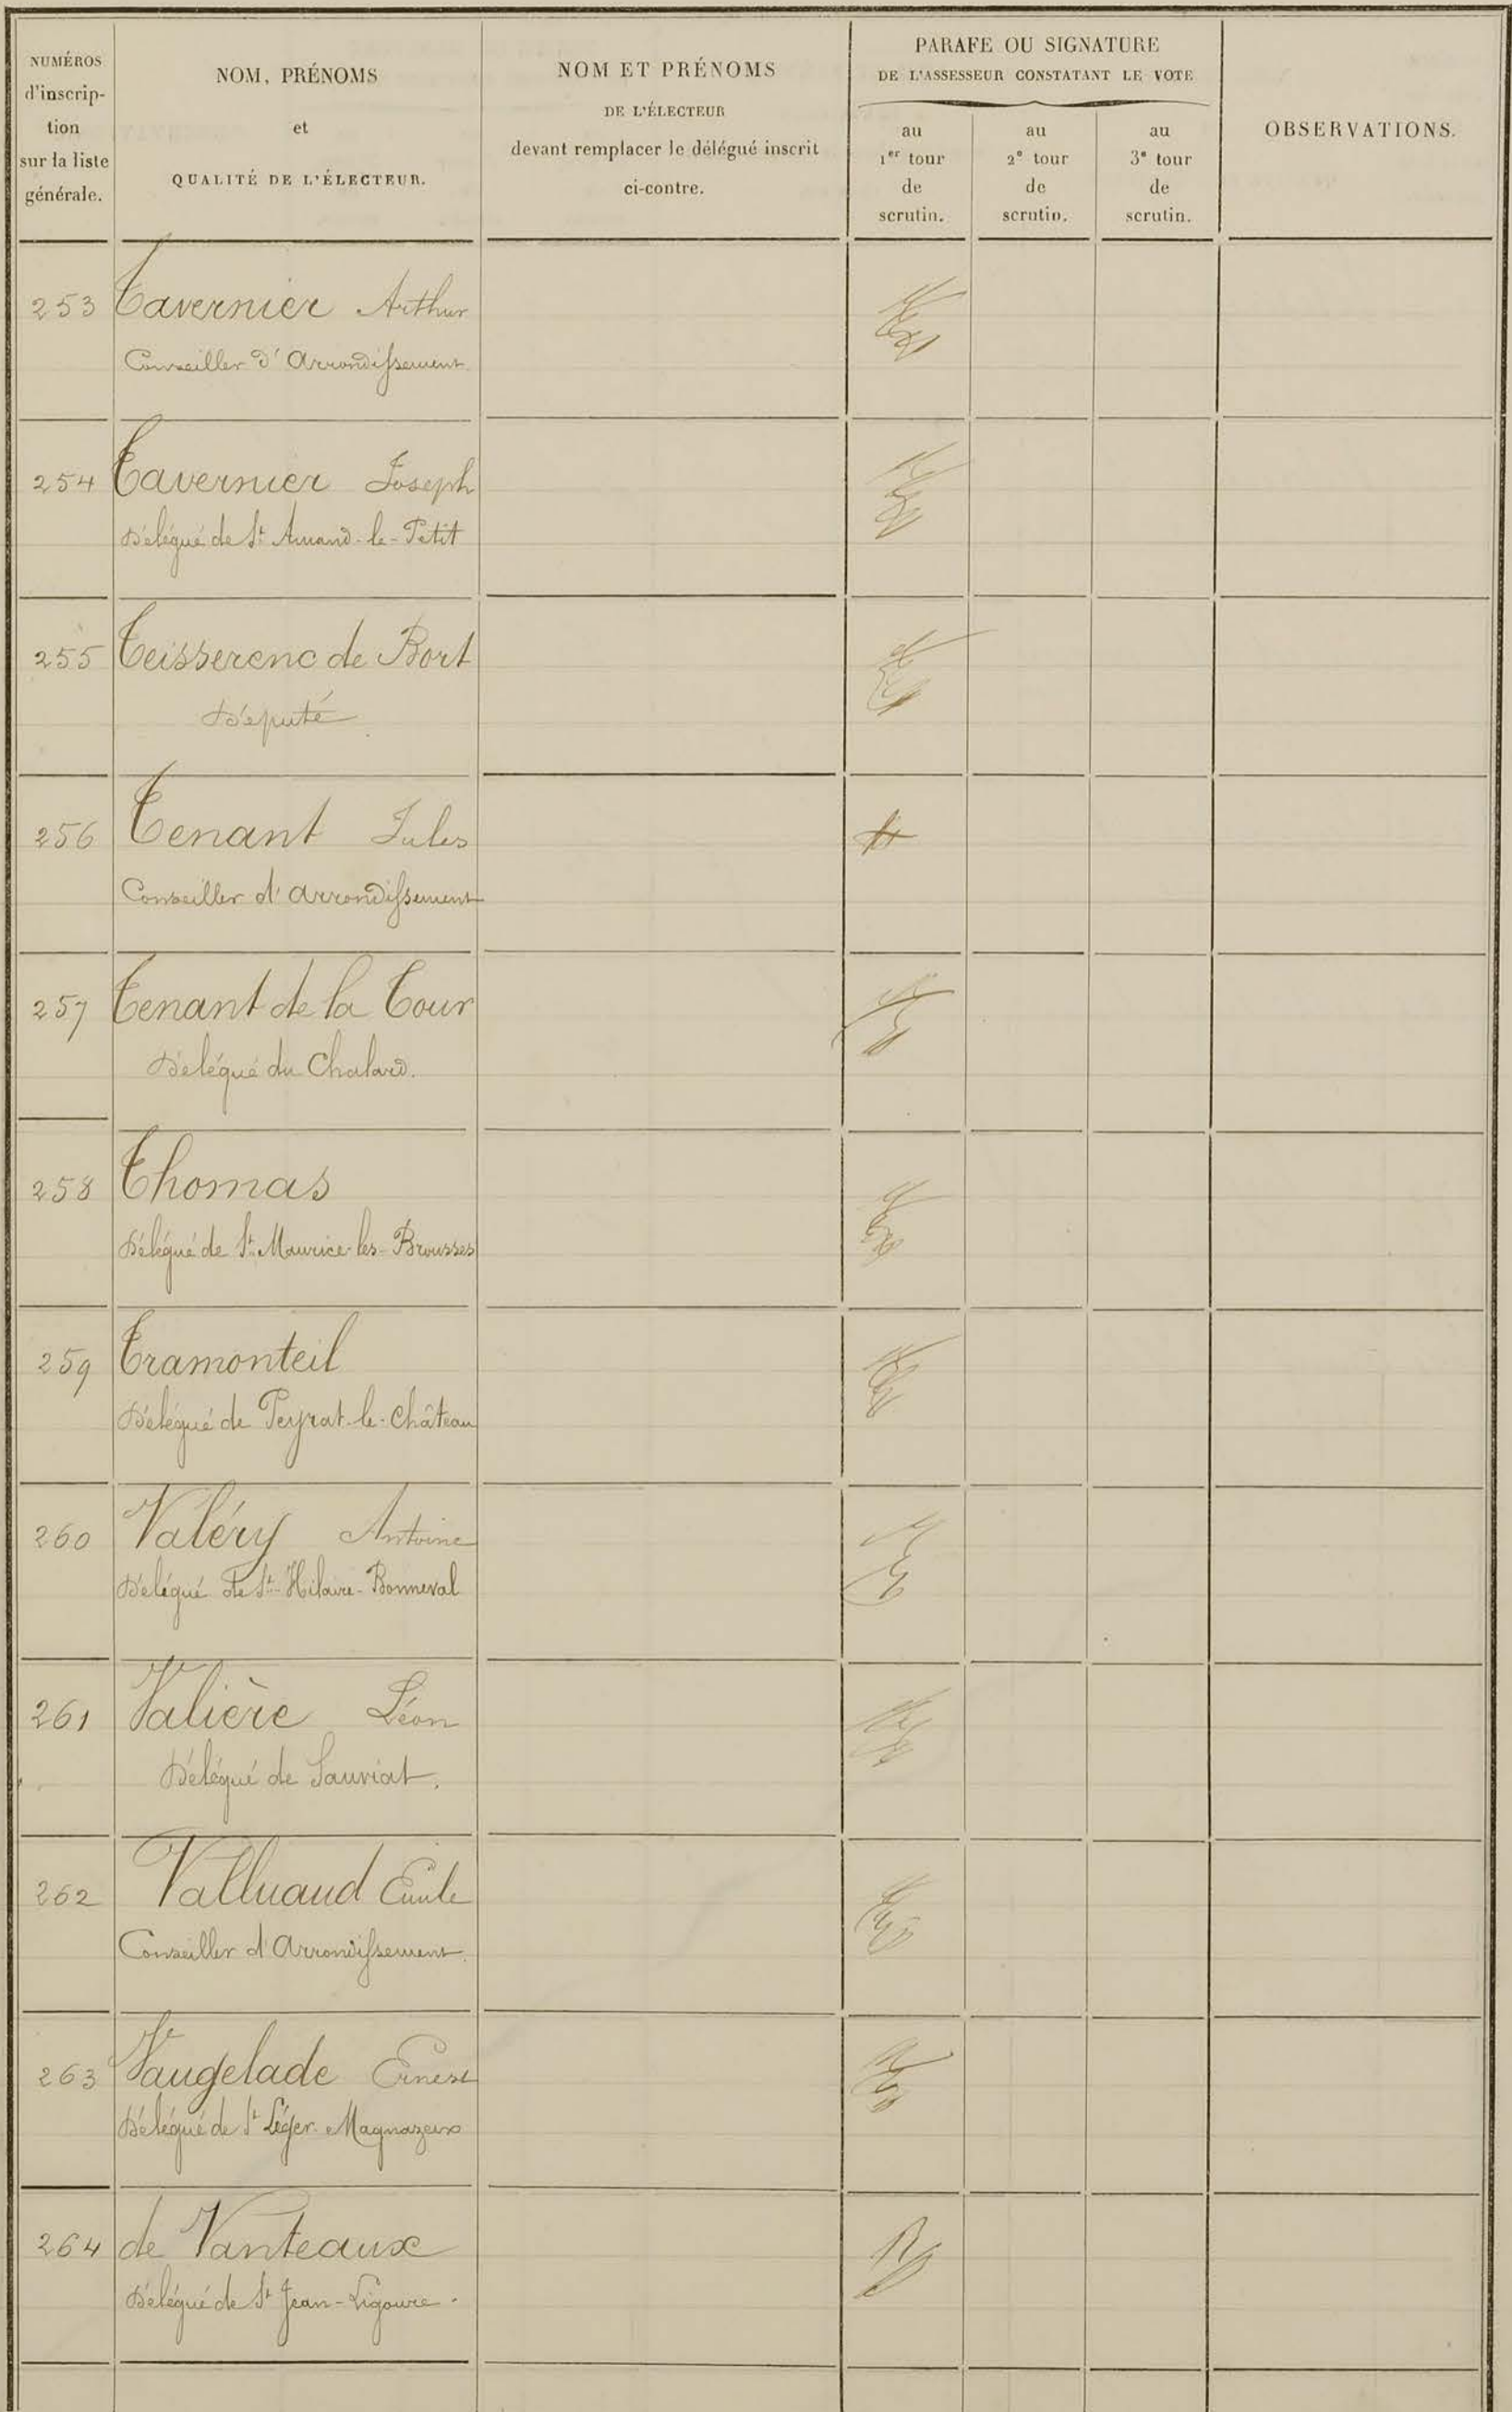 NUMÉROS
d'inscrip-
tion
sur la liste
générale.
NOM, PRÉNOMS
et
QUALITÉ DE L'ÉLECTEUR.
NOM ET PRÉNOMS
DE L'ÉLECTEUR
devant remplacer le délégué inscrit
ci-contre.
PARAFE OU SIGNATURE
DE L'ASSESSEUR CONSTATANT LE VOTE
au
1er tour
de
scrutin.
au
2e tour
de
scrutin.
au
3e tour
de
scrutin.
OBSERVATIONS.
253 Tavernier Arthur
Conseiller d'Arrondissement
254 Tavernier Joseph
Délégué de St Amand-le-Petit
255 Teisserenc de Bort
Député
256 Tenant Jules
Conseiller d'arrondissement
257 Tenant de la Tour
Délégué du Chalard.
258 Thomas
Délégué de St Maurice-les-Brousses
259 Tramonteil
Délégué de Peyrat-le-Château
260 Valéry Antoine
Délégué de St-Hilaire-Bonneval
261 Valière Léon
Délégué de Sauviat.
262 Valluaud Emile
Conseiller d'Arrondissement.
263 Vaugelade Ernest
Délégué de St Léger-Magnazeix
264 de Vanteaux
Délégué de St Jean-Ligoure.